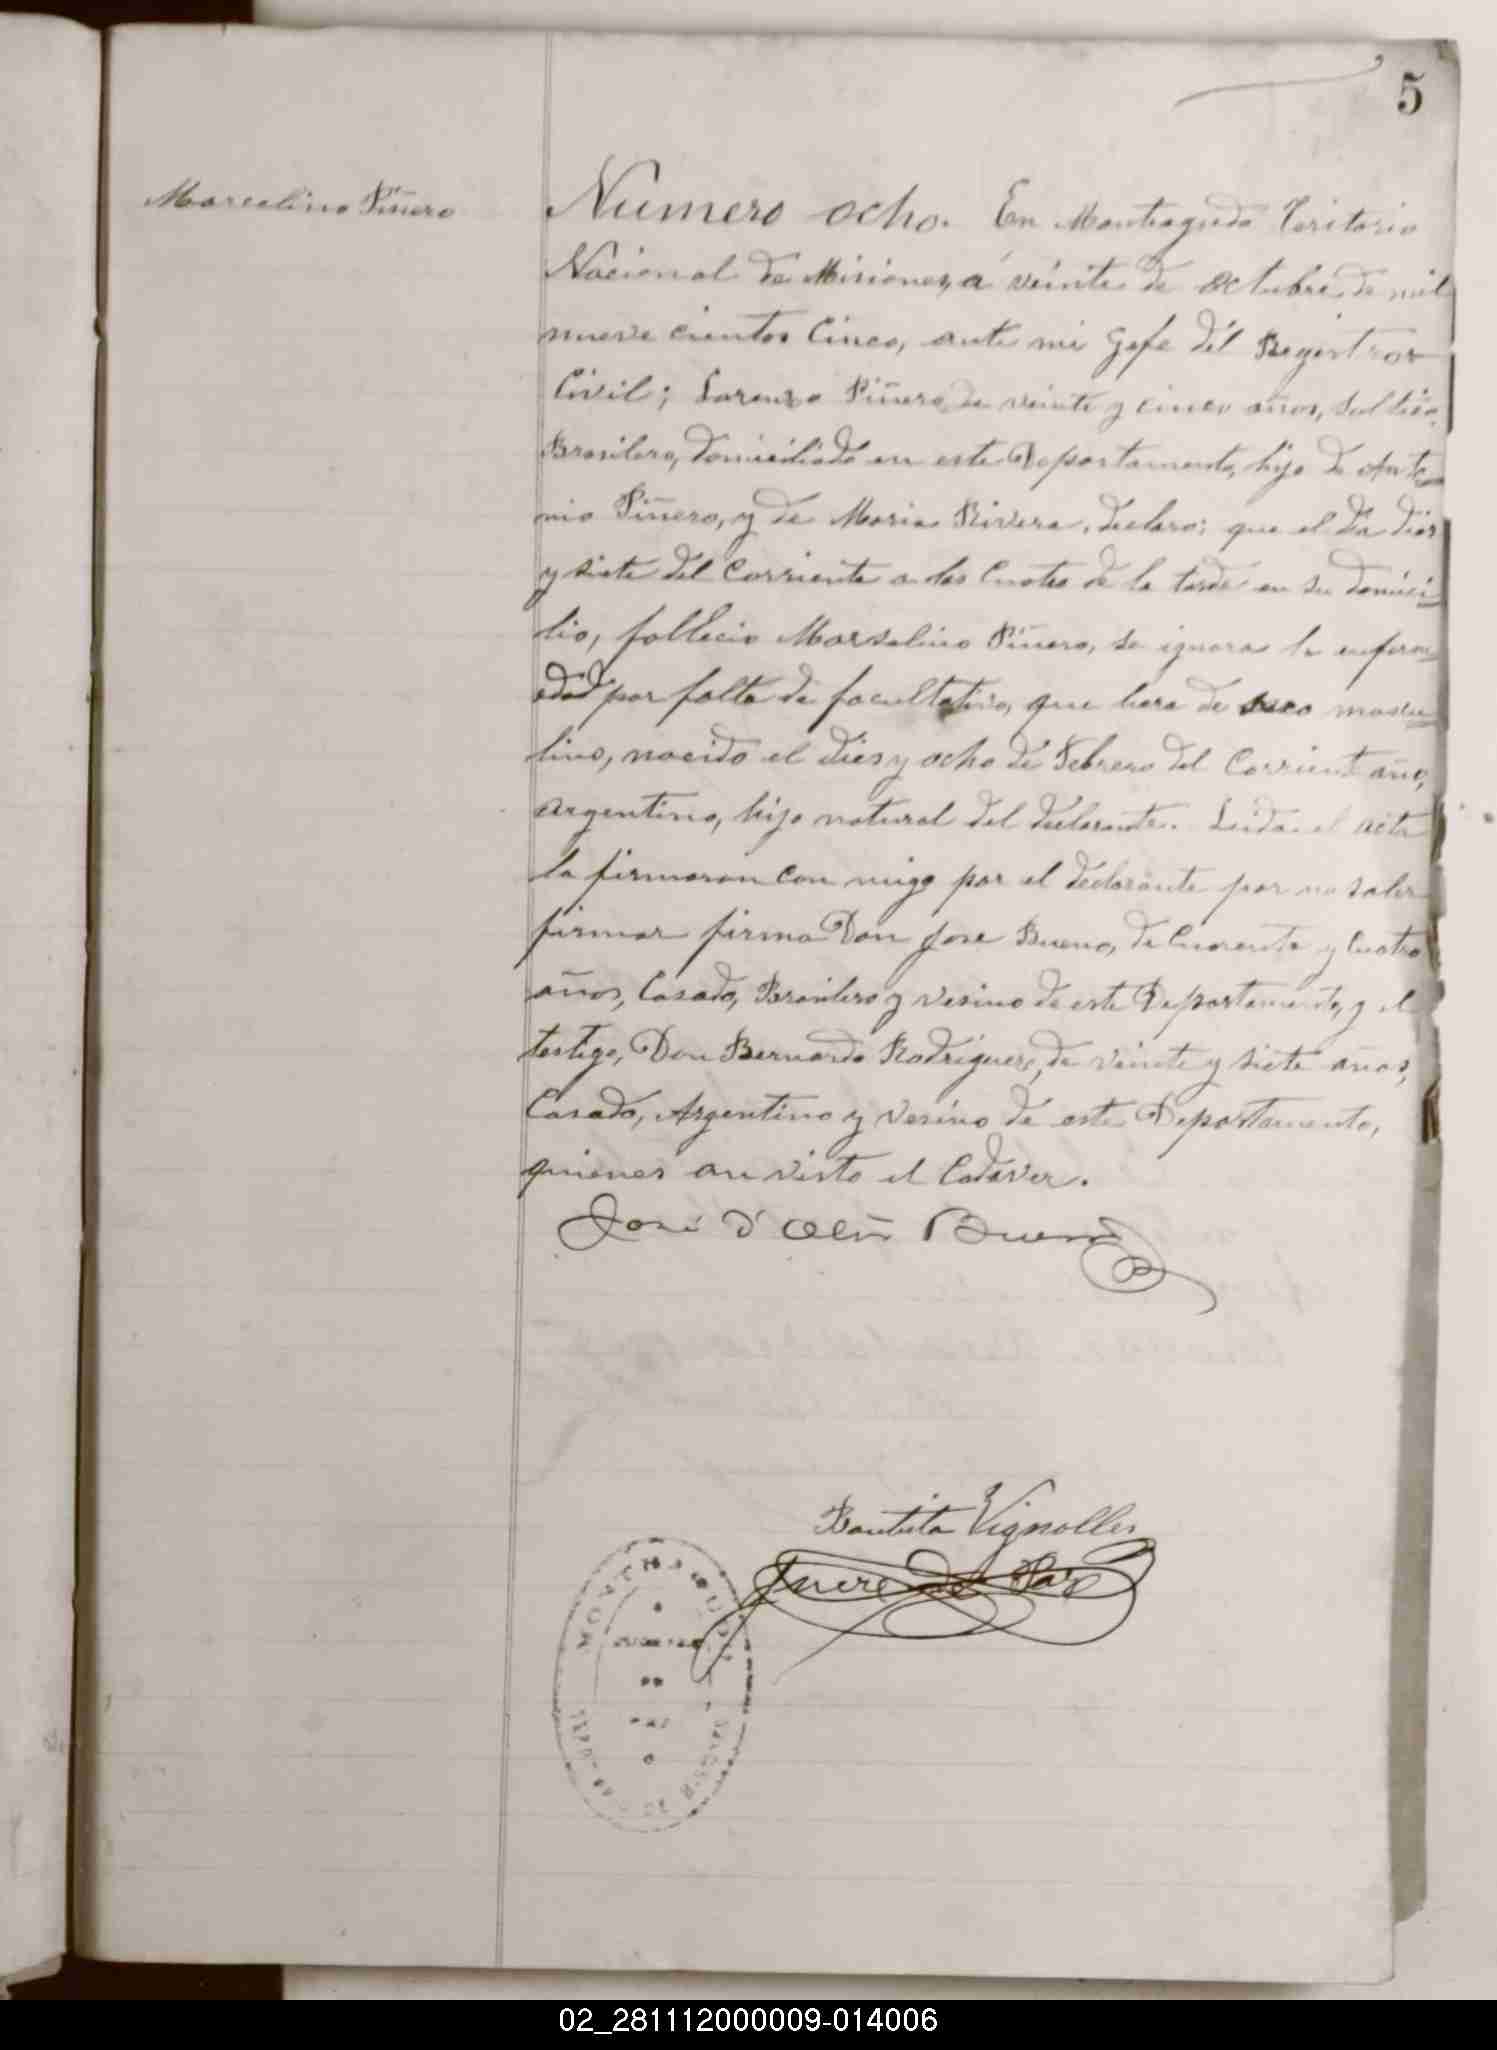 5
Marcelino Piñero
Numero ocho. En Monteagudo Teritorio
Nacional de Misiones, á veinte de Octubre de mil
nueve cientos Cinco, ante mi Gefe del Registro
Civil; Lorenzo Piñero, de veinte y cinco años, soltero,
Brasilero, domiciliado en este Departamento, hijo de Anto
nio Piñero, y de Maria Rivera, declaro: que el dia dies
y siete del Corriente a las Cuatro de la tarde en su domici
lio, fallecio Marselino Piñero, se ignora la enferm
edad por falta de facultativo, que hera de sexo mascu
lino, nacido el dies y ocho de Febrero del Corriente año,
Argentino, hijo natural del declarante. Leida el acta
la firmaron con migo por el declarante por no saber
firmar firma Don Jose Bueno, de Cuarenta y Cuatro
años, Casado, Brasilero y vesino de este Departamento, y el
testigo, Don Bernardo Rodriguez, de veinte y siete años,
Casado, Argentino y vesino de este Departamento,
quienes an visto el Cadaver.
José D' Bueno
Bautista Vignolles
Juez de Paz
MONTEAGUDO
JUZGADO
DE
PAZ
02_281112000009-014006